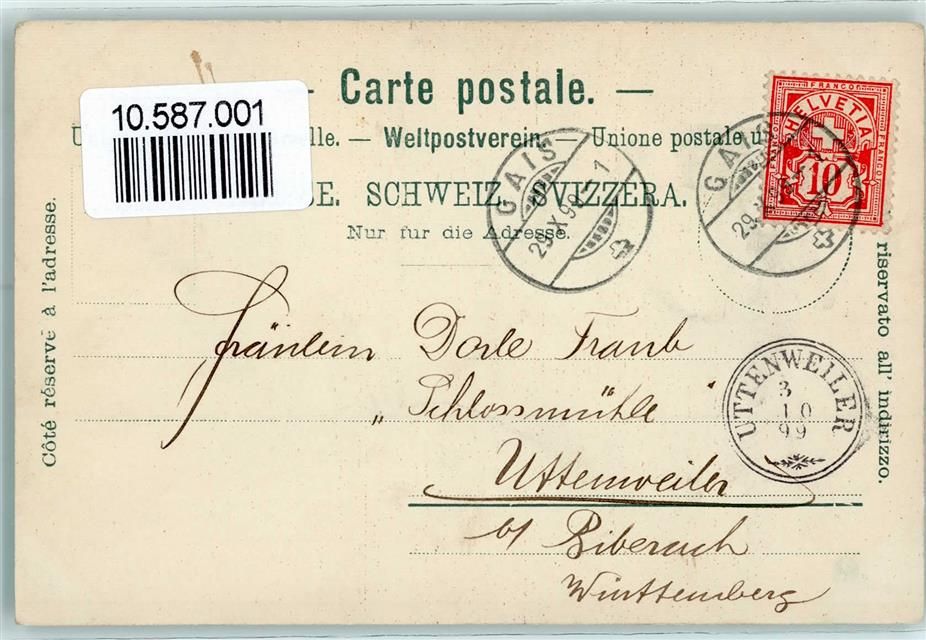 Carte postale.
10.587.001
lle. — Weltpostverein. — Unione postale u
SE. SCHWEIZ. SVIZZERA.
Nur für die Adresse.
Côté réservé à l'adresse.
riservato all' indirizzo.
FRANCO
HELVETIA
10
GAIS
29. X 99. 1
GAIS
29. X
UTTENWEILER
3
10
99
Fräulein Dorle Traub
„Schlossmühle"
Uttenweiler
b/ Biberach
Württemberg